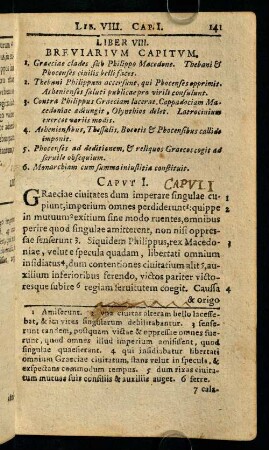 LIB. VIII. CAP. I. 141
LIBER VIII.
BREVIARIVM CAPITVM.
1. Graeciae clades sub Philippo Macedone. Thebani &
Phocenses civilis belli faces.
2. Thebani Philippum accersunt, qui Phocenses opprimit.
Athenienses saluti publicae pro virili consulunt.
3. Contra Philippus Graeciam lacerat, Cappadociam Ma-
cedoniae adiungit, Olynthios delet. Latrocinium
exercet variis modis.
4. Atheniensibus, Thessalis, Boeotis & Phocensibus callide
imponit.
5. Phocenses ad deditionem, & reliquos Graecos cogit ad
servile obsequium.
6. Monarchiam cum summa iniustitia constituit.
CAPVT I. CAPVT I
Graeciae ciuitates dum imperare singulae cu- 1
piunt, imperium omnes perdiderunt: quippe
in mutuum 2 exitium sine modo ruentes, omnibus 2
perire quod singulae amitterent, non nisi oppres-
sae senserunt 3. Siquidem Philippus, rex Macedo- 3
niae, velut e specula quadam, libertati omnium
insidiatus 4, dum contentiones ciuitatium alit 5, au-
xilium inferioribus ferendo, victos pariter victo-
resque subire 6 regiam seruitutem coegit. Caussa 4
& origo
1 Amiserunt.
bat, & ita vires singularum debilitabantur. 3 sense-
runt tandem, postquam victae & oppressae omnes fue-
runt, quod omnes illud imperium amisissent, quod
singulae quaesierant. 4 qui insidiabatur libertati
omnium Graeciae ciuitatum, stans velut in specula, &
exspectans commodum tempus. 5 dum rixas ciuita-
tum mutuas suis consiliis & auxiliis auget. 6 ferre.
7 cala-